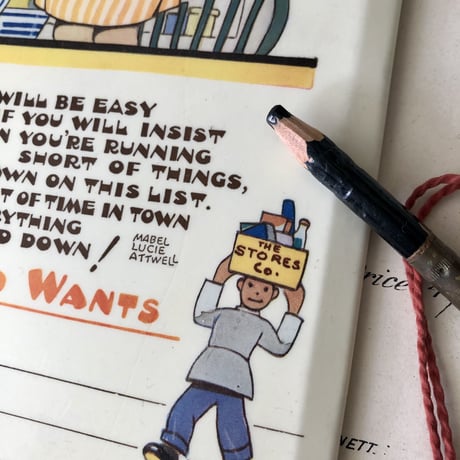 WILL BE EASY
IF YOU WILL INSIST
YOU'RE RUNNING
SHORT OF THINGS,
OWN ON THIS LIST.
OF TIME IN TOWN
DOWN!
MABEL
LUCIE
ATTWELL
WANTS
THE
STORES
Co.
rice
NETT: